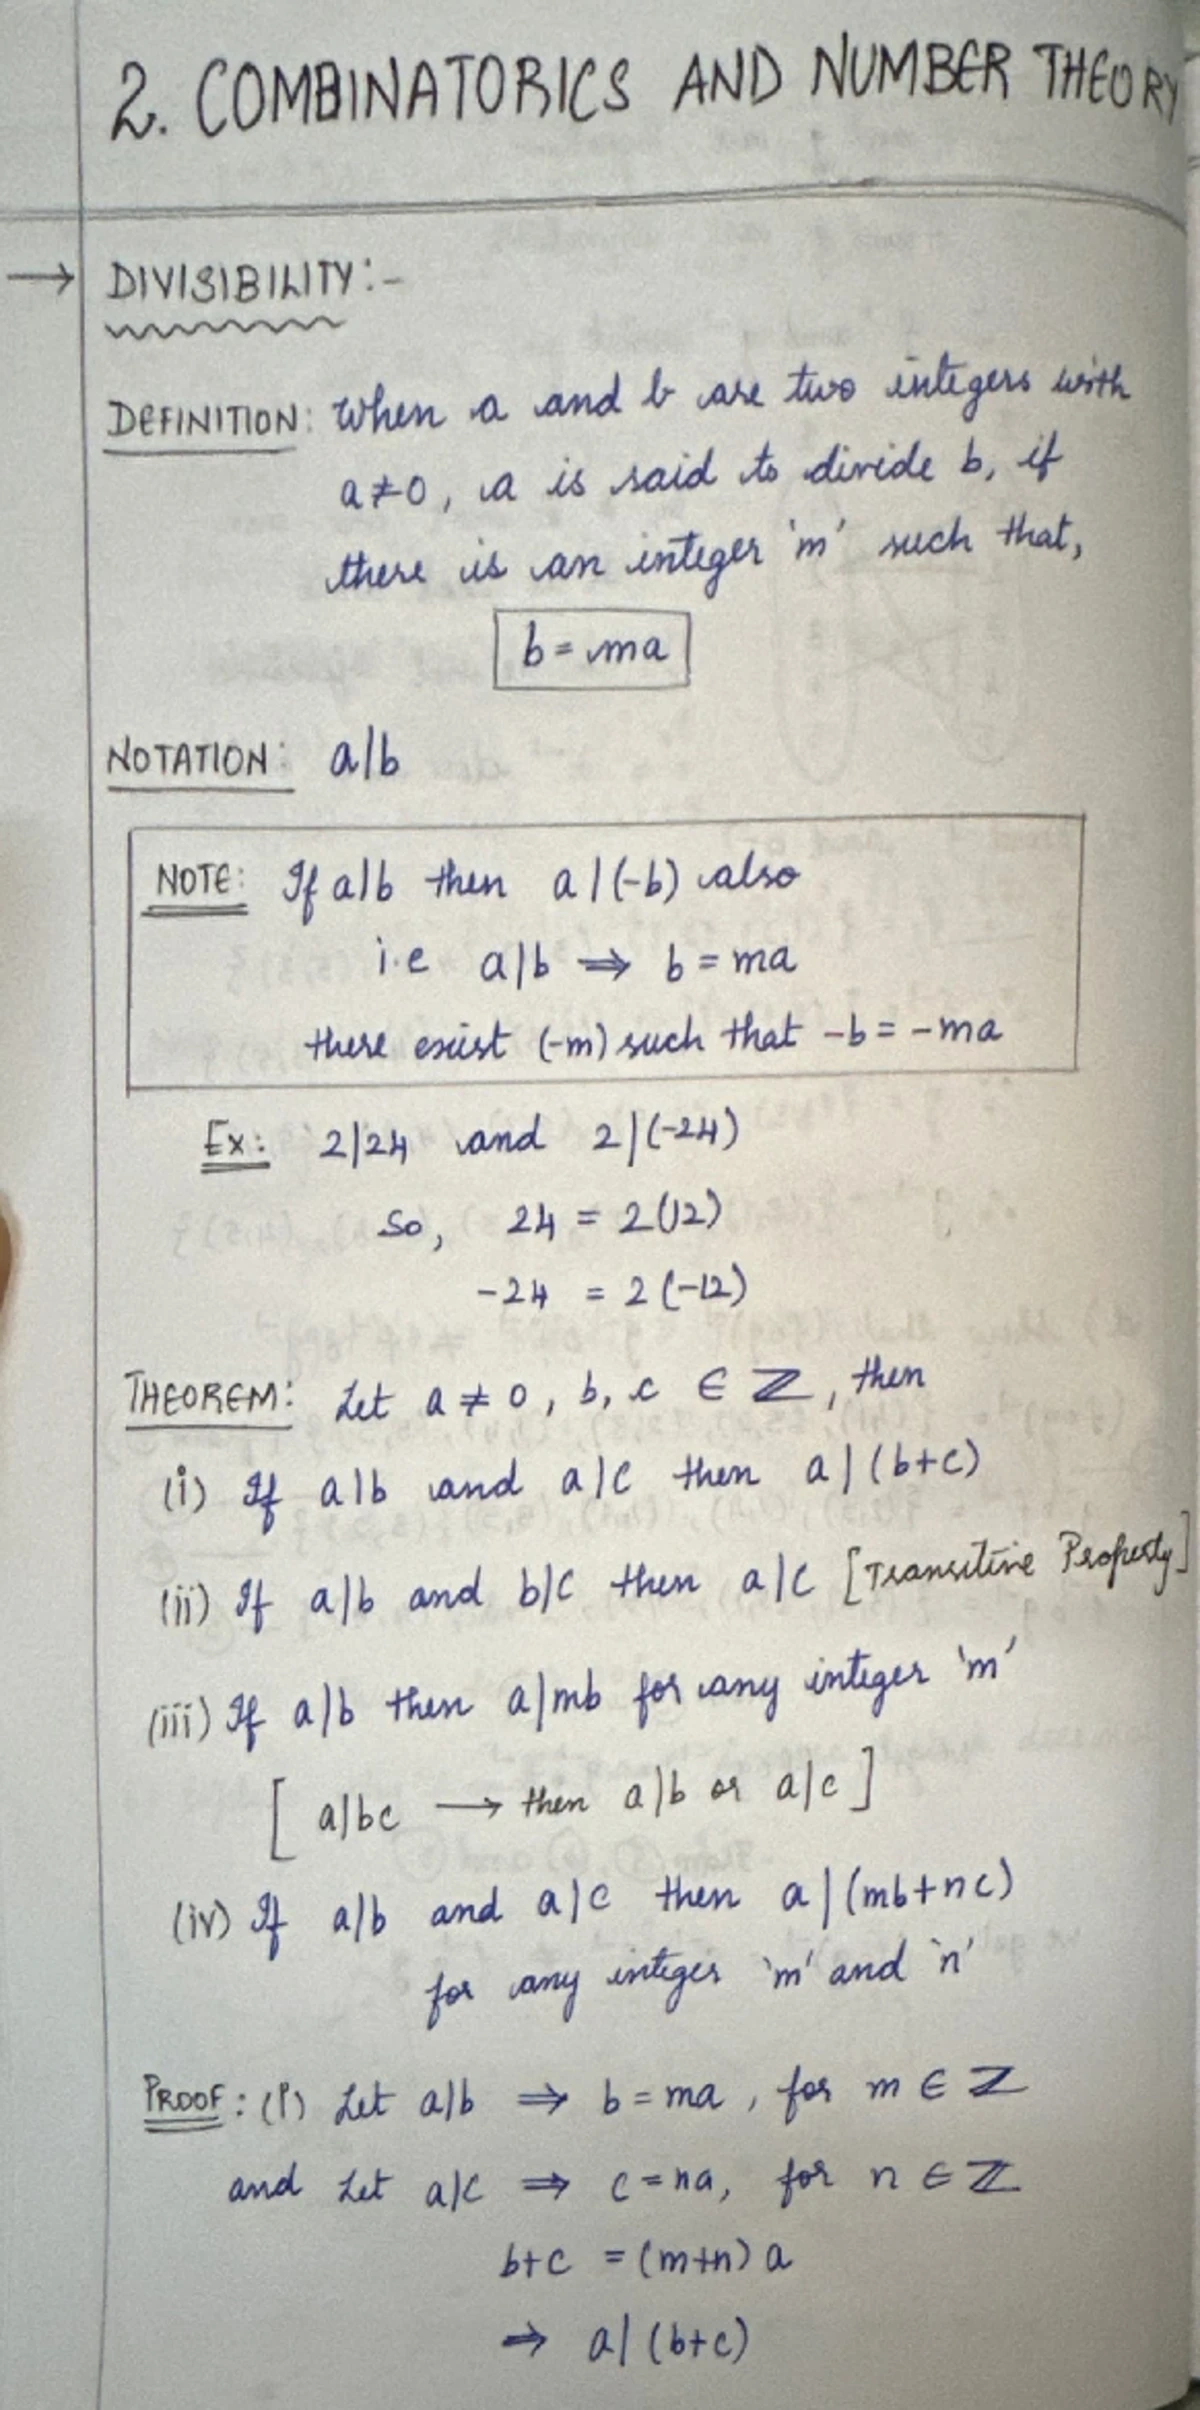 2. COMBINATORICS AND NUMBER THEORY
→ DIVISIBILITY:-
DEFINITION: When a and b are two integers with
a≠0, a is said to divide b, if
there is an integer 'm' such that,
b = ma
NOTATION: a|b
NOTE: If a|b then a|(-b) also
i.e a|b ⇒ b = ma
there exist (-m) such that -b = -ma
Ex: 2|24 and 2|(-24)
So, 24 = 2(12)
-24 = 2(-12)
THEOREM: Let a ≠ 0, b, c ∈ ℤ, then
(i) If a|b and a|c then a|(b+c)
(ii) If a|b and b|c then a|c [Transitive Property]
(iii) If a|b then a|mb for any integer 'm'
[ a|bc → then a|b or a|c ]
(iv) If a|b and a|c then a|(mb+nc)
for any integer 'm' and 'n'
PROOF: (i) Let a|b ⇒ b = ma, for m ∈ ℤ
and Let a|c ⇒ c = na, for n ∈ ℤ
b+c = (m+n) a
⇒ a|(b+c)